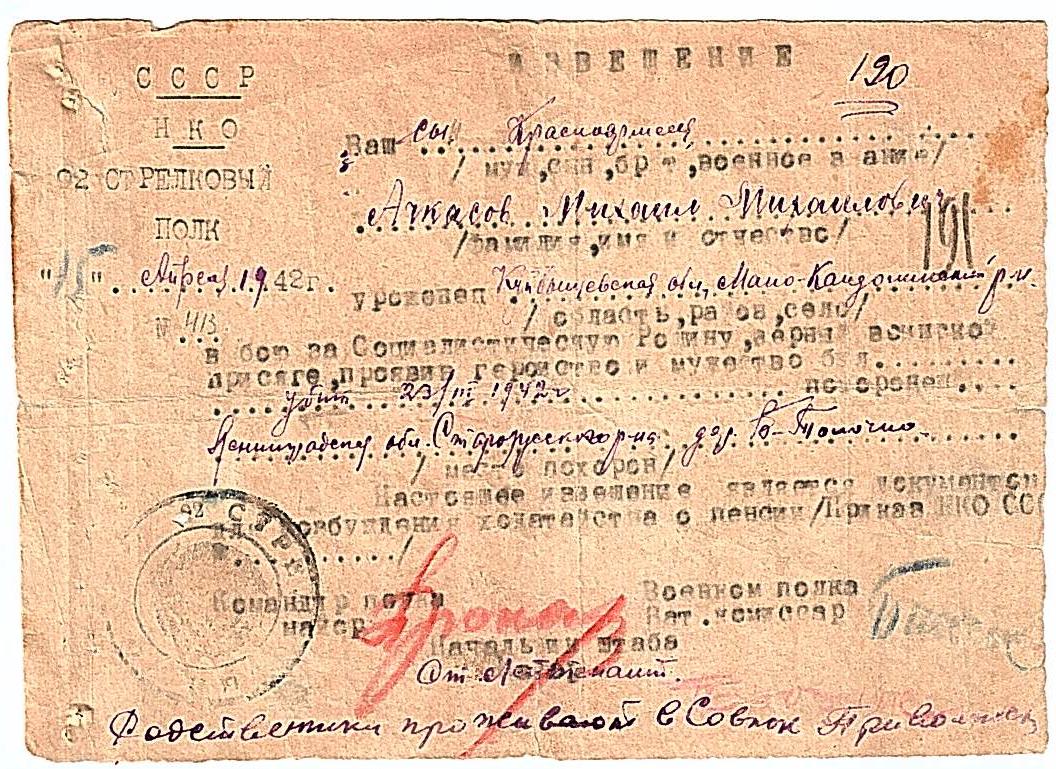 ИЗВЕЩЕНИЕ
120
СССР
НКО
92 СТРЕЛКОВЫЙ
ПОЛК
"15" Апреля 1942 г.
№ 413
Ваш сын Красноармеец
/ муж, сын, брат, военное звание/
Ачкасов Михаил Михайлович
191
/фамилия, имя и отчество/
уроженец Куйбышевская обл, р-н.
/ область, район, село/
в бою за Социалистическую Родину, верный воинской
присяге, проявив геройство и мужество был
убит 23/III 1942 г похоронен
Ленинградская обл. Старорусского р-на, дер.
/ место похорон/
Настоящее извещение является документом
для возбуждения ходатайства о пенсии /Приказ НКО ССС
№ /
92 СТРЕ
Командир полка
майор
Военком полка
Бат. комиссар
Начальник штаба
Ст. Лейтенант.
проживают в